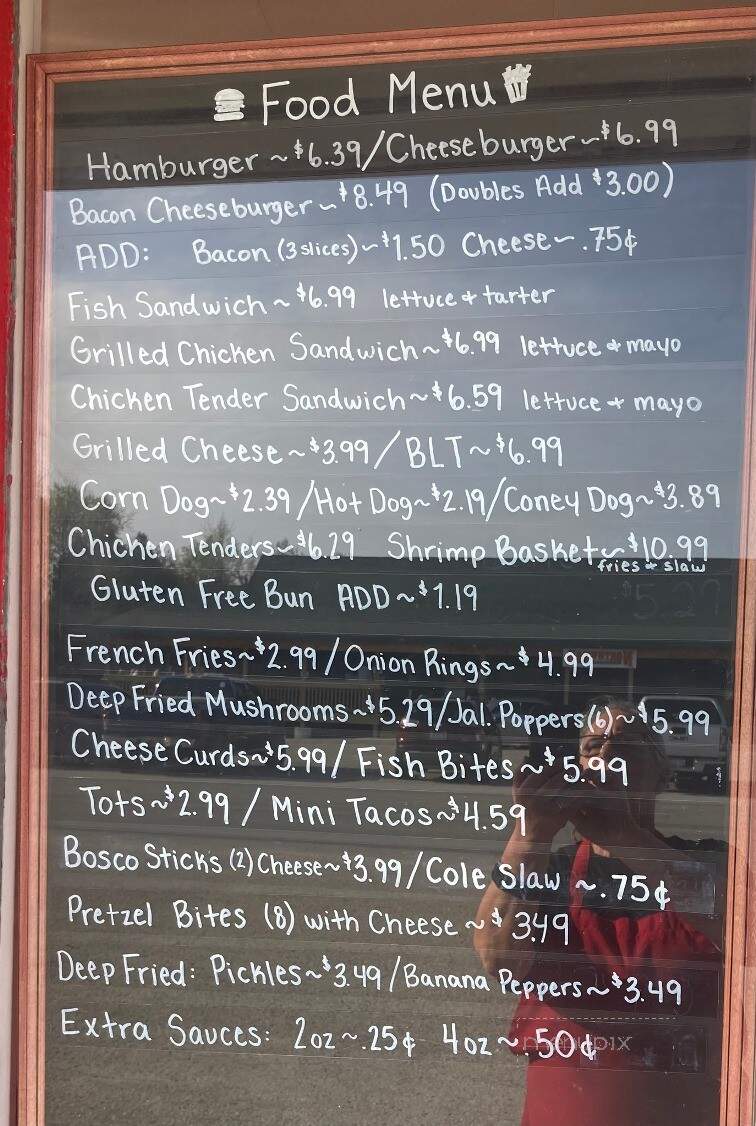 Food Menu
Hamburger ~ $6.39/Cheeseburger ~ $6.99
Bacon Cheeseburger ~ $8.49 (Doubles Add $3.00)
ADD: Bacon (3 slices) ~ $1.50 Cheese ~ .75¢
Fish Sandwich ~ $6.99 lettuce + tarter
Grilled Chicken Sandwich ~ $6.99 lettuce + mayo
Chicken Tender Sandwich ~ $6.59 lettuce + mayo
Grilled Cheese ~ $3.99/BLT ~ $6.99
Corn Dog ~ $2.39/Hot Dog ~ $2.19/Coney Dog ~ $3.89
Chicken Tenders ~ $6.29 Shrimp Basket ~ $10.99
fries + slaw
Gluten Free Bun ADD ~ $1.19
French Fries ~ $2.99/Onion Rings ~ $4.99
Deep Fried Mushrooms ~ $5.29/Jal. Poppers (6) ~ $5.99
Cheese Curds ~ $5.99/Fish Bites ~ $5.99
Tots ~ $2.99/Mini Tacos ~ $4.59
Bosco Sticks (2) Cheese ~ $3.99/Cole Slaw ~ .75¢
Pretzel Bites (8) with Cheese ~ $3.49
Deep Fried: Pickles ~ $3.49/Banana Peppers ~ $3.49
Extra Sauces: 2oz ~ .25¢ 4oz ~ .50¢
menupix